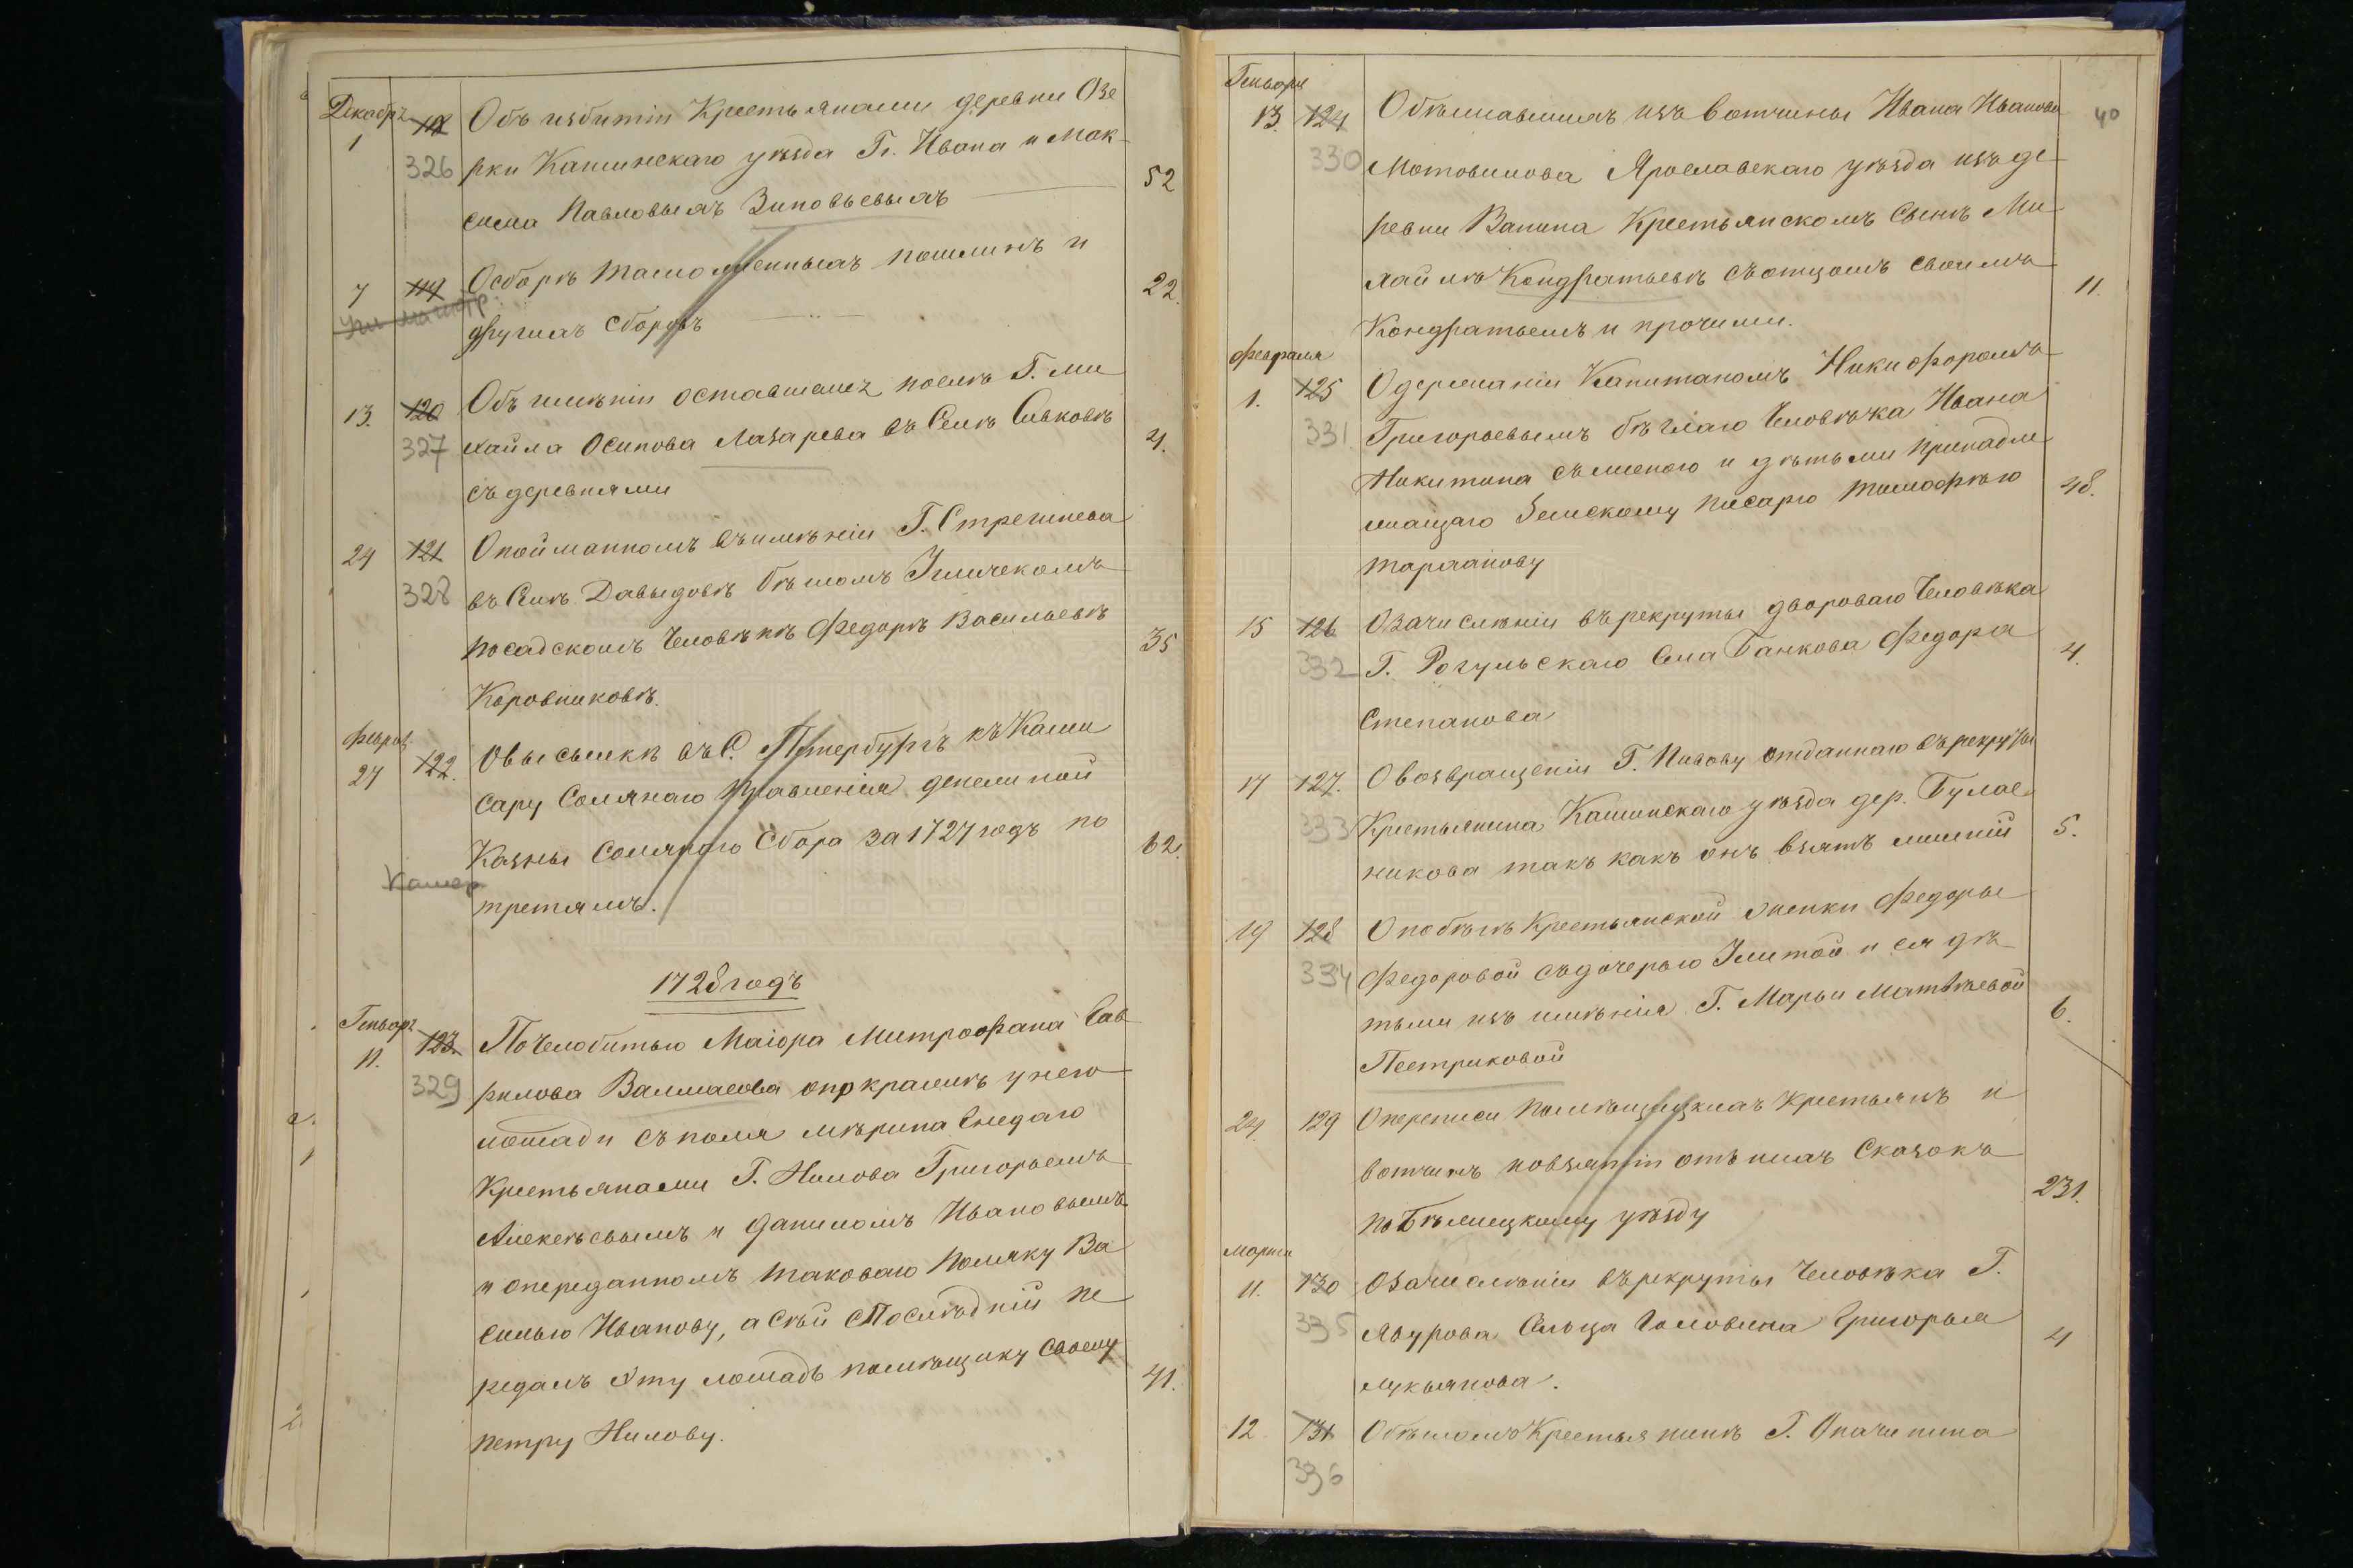 Декабрь
1 118 Объ избитіи Крестьянами деревни Озе
326 рки Кашинскаго уѣзда Гг. Ивана и Мак-
сима Павловыхъ Зиновьевыхъ 52
7 119 О сборѣ таможенныхъ пошлинъ и
другихъ сборовъ 22.
13. 120 Объ имѣніи оставшемся послѣ Г. Ми
327 хайла Осипова Лазарева въ Селѣ Сивковѣ 4.
съ деревнями
24 121 О пойманномъ въ имѣніи Г. Стрешнева
328 въ Селѣ Давыдовѣ бѣгломъ Углическомъ
посадскомъ Человѣкѣ Федорѣ Васильевѣ 35
Коровниковѣ.
Феврал
27 122. О высылкѣ въ С. Петербургъ къ Коми
сару Солянаго Правленія денежной
Казны Солянаго Сбора за 1727 годъ по 62.
Камер
третямъ.
1728 годъ
Генварь
11. 123. По Челобитью Маіора Митрофана Гав
329 рилова Валмасова о покражѣ у него
лошади съ поля мѣрина Гнедаго
Крестьянами Г. Нилова Григорьемъ
Алексѣевымъ и Даниломъ Ивановымъ
и о переданномъ таковаго Поляку Ва
силью Иванову, а Сей Последній пе
редалъ эту лошадь помѣщику Своему 41.
Петру Нилову.
40
Генваря
13. 124 О бѣжавшихъ изъ вотчины Ивана Иванова
330 Мотовилова Ярославскаго уѣзда изъ де
ревни Ванина Крестьянскомъ Сынѣ Ми
хайлѣ Кондратьевѣ съ отцомъ своимъ 11.
Кондратьемъ и прочими.
Февраля
1. 125 О держаніи Капитаномъ Никифоромъ
331 Григорьевымъ бѣглаго Человѣка Ивана
Никитина съ женою и дѣтьми принадле
жащаго Земскому писарю Тимофѣю 48.
Тарханову
15 126 О зачисленіи въ рекруты двороваго Человѣка
332 Г. Рогульскаго Села Банкова Федора 4.
Степанова
17 127. О возвращеніи Г. Нилову отданнаго въ рекруты
333 Крестьянина Кашинскаго уѣзда дер. Булае
никова такъ какъ онъ взятъ лишній 5.
19 128 О побѣгѣ Крестьянской жонки Федоры
334 Федоровой съ дочерью Улитой и ея дѣ
тьми изъ имѣнія Г. Марьи Матвѣевой 6.
Пестриковой
24. 129 О переписи помѣщицкихъ Крестьянъ и
вотчинъ по взятіи отъ нихъ Сказокъ
по Бѣжецкому уѣзду 231.
Марта
11. 130 О зачисленіи въ рекруты Человѣка Г.
335 Азурова Сельца Головина Григорья 4
Лукьянова.
12 131 О бѣгломъ Крестьянинѣ Г. Опачинина
336